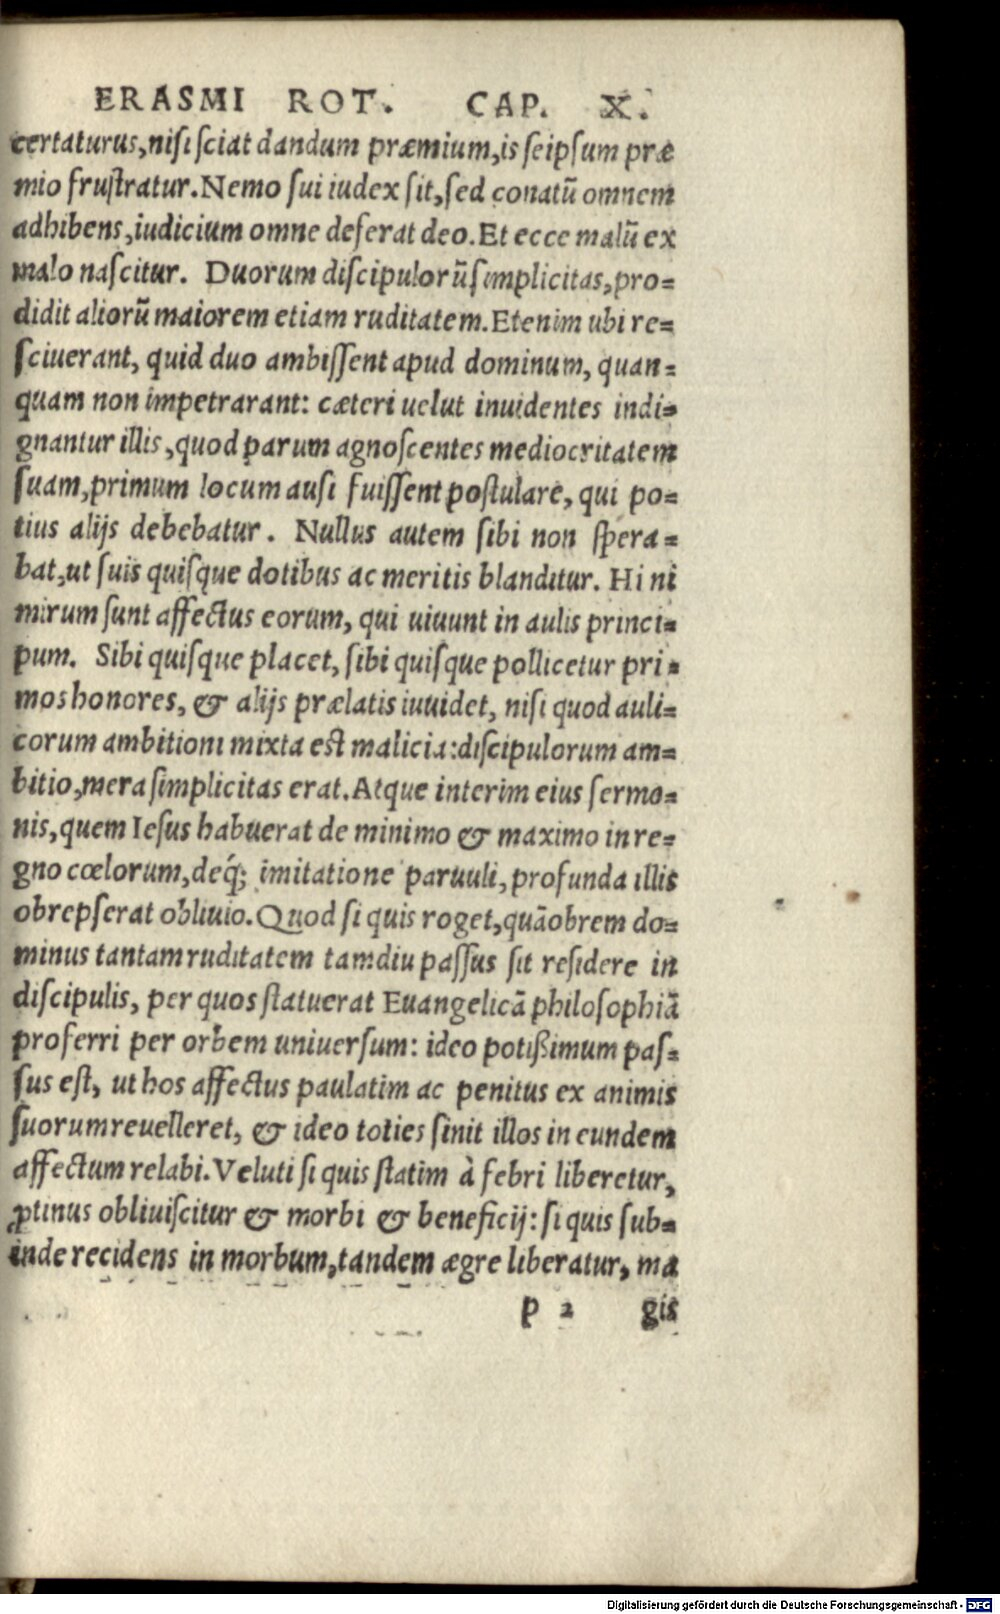 ERASMI ROT. CAP. X.
certaturus,nisi sciat dandum præmium,is seipsum præ
mio frustratur.Nemo sui iudex sit,sed conatũ omnem
adhibens,iudicium omne deferat deo.Et ecce malũ ex
malo nascitur. Duorum discipulorũ simplicitas,pro=
didit aliorũ maiorem etiam ruditatem.Etenim ubi re=
sciuerant, quid duo ambissent apud dominum, quan=
quam non impetrarant: cæteri uelut inuidentes indi=
gnantur illis,quod parum agnoscentes mediocritatem
suam,primum locum ausi fuissent postulare, qui po=
tius alijs debebatur. Nullus autem sibi non spera=
bat,ut suis quisque dotibus ac meritis blanditur. Hi ni
mirum sunt affectus eorum, qui uiuunt in aulis princi=
pum. Sibi quisque placet, sibi quisque pollicetur pri=
mos honores, & alijs prælatis iuuidet, nisi quod auli=
corum ambitioni mixta est malicia:discipulorum am=
bitio,mera simplicitas erat.Atque interim eius sermo=
nis,quem Iesus habuerat de minimo & maximo in re=
gno cœlorum,deq́; imitatione paruuli, profunda illis
obrepserat obliuio.Quod si quis roget,quãobrem do=
minus tantam ruditatem tamdiu passus sit residere in
discipulis, per quos statuerat Euangelicã philosophiã
proferri per orbem uniuersum: ideo potißimum pas=
sus est, ut hos affectus paulatim ac penitus ex animis
suorum reuelleret, & ideo toties sinit illos in eundem
affectum relabi.Veluti si quis statim à febri liberetur,
ꝓtinus obliuiscitur & morbi & beneficij: si quis sub=
inde recidens in morbum,tandem ægre liberatur, ma
p 2 gis
Digitalisierung gefördert durch die Deutsche Forschungsgemeinschaft - DFG